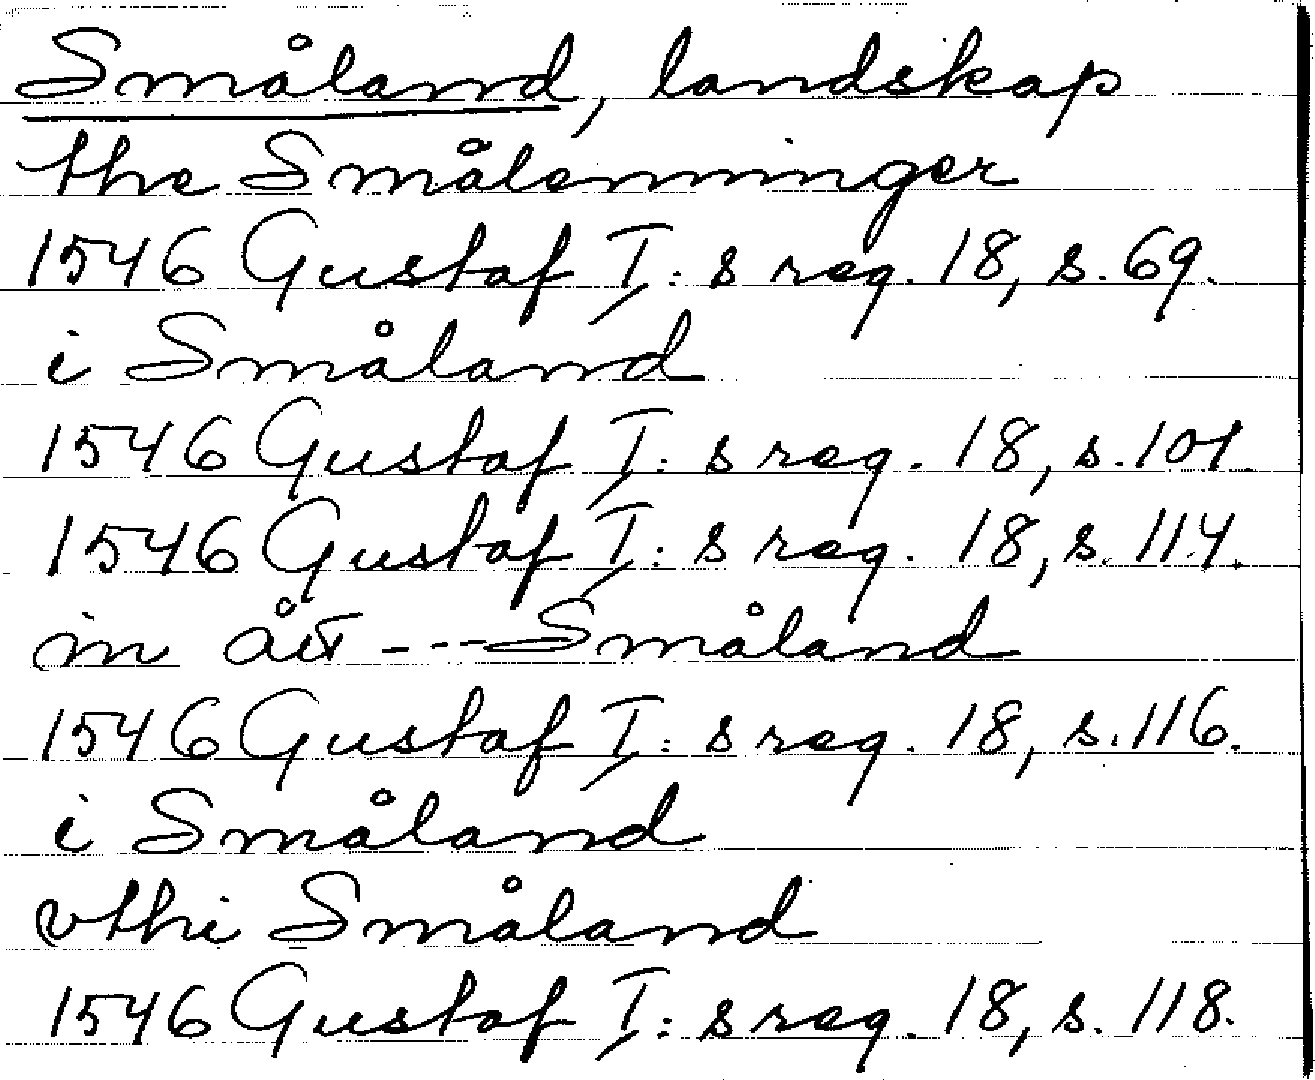 Småland, landskap
the Smålenninger
1546 Gustaf I: s reg. 18, s. 69.
i Småland
1546 Gustaf I: s reg. 18, s. 101.
1546 Gustaf I: s reg. 18, s. 114.
in åt --- Småland
1546 Gustaf I: s reg. 18, s. 116.
i Småland
vthi Småland
1546 Gustaf I: s reg. 18, s. 118.